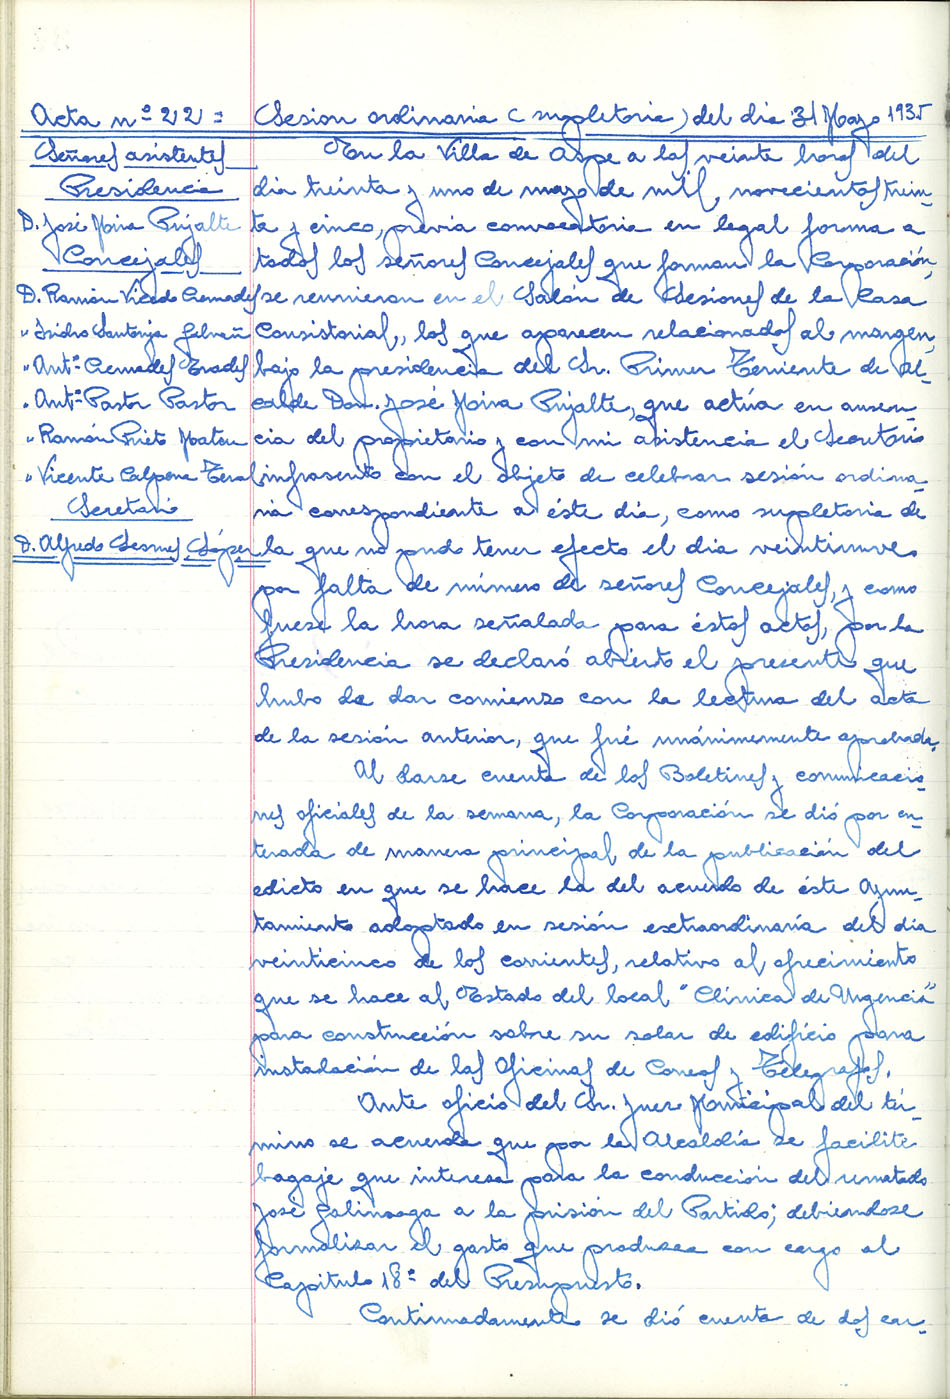 Acta nº 22 = Sesion ordinaria (supletoria) del dia 31 Mayo 1935
Señores asistentes
Presidencia
D. José Mira Pujalte
Concejales
D. Ramón Vicedo Cremades
" Isidro Santonja Galvañ
" Antº Cremades Prades
" Antº Pastor Pastor
" Ramón Prieto
" Vicente Calpena
Secretario
D. Alfredo Sesmes López
En la Villa de Aspe a las veinte horas del
dia treinta y uno de mayo de mil, novecientos trein-
ta y cinco, previa convocatoria en legal forma a
todos los señores Concejales que forman la Corporación,
se reunieron en el Salón de Sesiones de la Casa
Consistorial, los que aparecen relacionados al margen,
bajo la presidencia del Sr. Primer Teniente de Al-
calde Don. José Mira Pujalte, que actúa en ausen-
cia del propietario y con mi asistencia el Secretario
infrascrito con el objeto de celebrar sesión ordina-
ria correspondiente a éste día, como supletoria de
la que no pudo tener efecto el dia veintinueve
por falta de número de señores Concejales, y como
fuese la hora señalada para éstos actos, por la
Presidencia se declaró abierto el presente que
hubo de dar comienzo con la lectura del acta
de la sesión anterior, que fué unánimemente aprobada.
Al darse cuenta de los Boletines y comunicacio-
nes oficiales de la semana, la Corporación se dió por en-
terada de manera principal, de la publicación del
edicto en que se hace la del acuerdo de éste Ayun-
tamiento adoptado en sesión extraordinaria del día
veinticinco de los corrientes, relativo al ofrecimiento
que se hace al Estado del local "Clínica de Urgencia"
para construcción sobre su solar de edificio para
instalación de las Oficinas de Correos y Telegrafos.
Ante oficio del Sr. Juez Municipal del tér-
mino se acuerda que por la Alcaldía se facilite
bagaje que interesa para la conducción del rematado
José Galinsoga a la prisión del Partido; debiendose
formalizar el gasto que produzca con cargo al
Capitulo 18º del Presupuesto.
Continuadamente se dió cuenta de dos car-